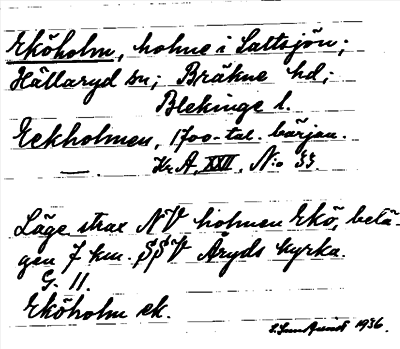 Eköholm, holme i Saltsjön;
Hällaryd sn; Bräkne hd;
Blekinge l.
Eckholmen, 1700-tal. början.
—. Kr. A, XXII, N:o 33.
Läge strax NV holmen Ekö, belä-
gen 7 km. SSV Åryds kyrka.
G. 11.
Eköholm ek.
1936.